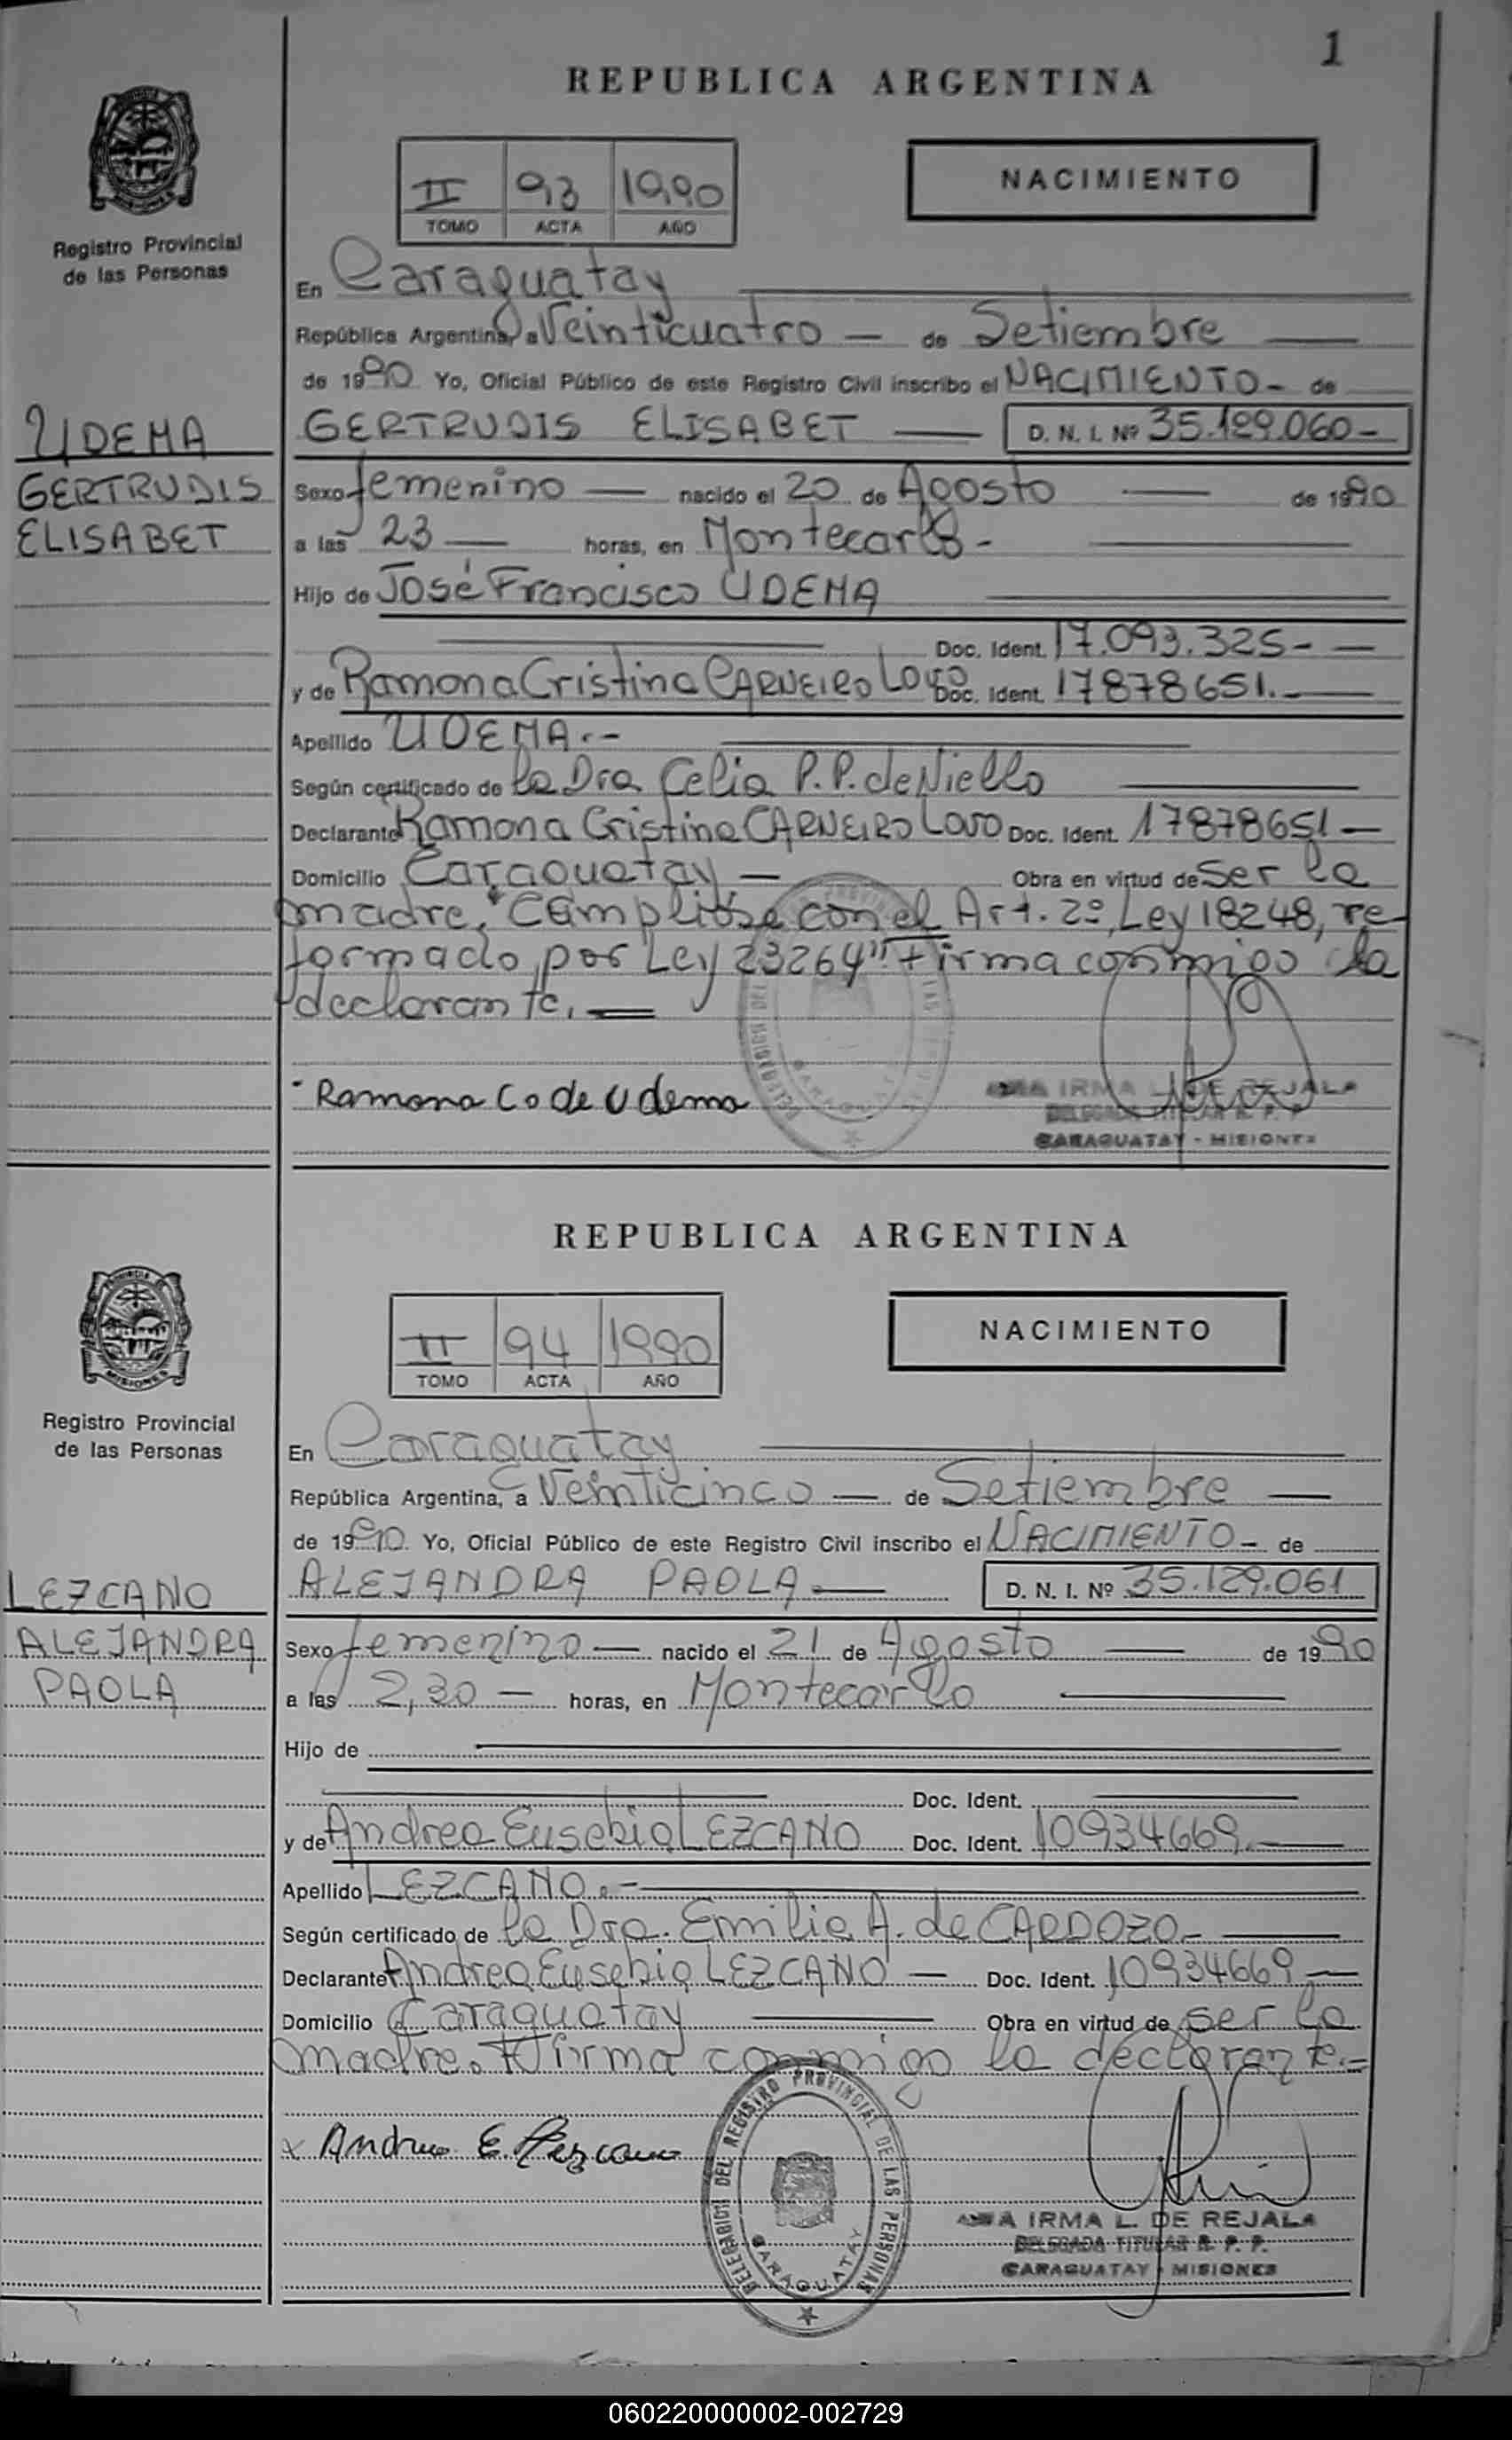 1
REPUBLICA ARGENTINA
II 93 1990
TOMO ACTA AÑO
NACIMIENTO
Registro Provincial
de las Personas
En Caraguatay
República Argentina, a Veinticuatro — de Setiembre —
de 1990 Yo, Oficial Público de este Registro Civil inscribo el NACIMIENTO - de
UDEMA
GERTRUDIS
ELISABET
GERTRUDIS ELISABET — D. N. I. Nº 35.129.060-
Sexo femenino — nacido el 20 de Agosto — de 1990
a las 23 — horas, en Montecarlo -
Hijo de José Francisco UDEMA
Doc. Ident. 17.093.325- —
y de Ramona Cristina CARNEIRO Lovo Doc. Ident. 17878651.-
Apellido UDEMA.-
Según certificado de la Dra Celia P. P. de Niello
Declarante Ramona Cristina CARNEIRO Lovo Doc. Ident. 17878651 —
Domicilio Caraguatay — Obra en virtud de ser la
madre. "Cúmpliose con el Art. 2º, Ley 18248, re-
formado por Ley 23264". Firma conmigo la
declarante. —
Ramona Co de Udema
IRMA L. DE REJALA
DELEGADA TITULAR R. P. P.
CARAGUATAY - MISIONES
REPUBLICA ARGENTINA
II 94 1990
TOMO ACTA AÑO
NACIMIENTO
MISIONES
Registro Provincial
de las Personas
En Caraguatay
República Argentina, a Veinticinco — de Setiembre —
de 1990 Yo, Oficial Público de este Registro Civil inscribo el NACIMIENTO - de
LEZCANO
ALEJANDRA
PAOLA
ALEJANDRA PAOLA — D. N. I. Nº 35.129.061
Sexo femenino — nacido el 21 de Agosto — de 1990
a las 2,30 — horas, en Montecarlo
Hijo de
Doc. Ident.
y de Andrea Eusebia LEZCANO Doc. Ident. 10934669.-
Apellido LEZCANO.-
Según certificado de la Dra. Emilia A. de CARDOZO -
Declarante Andrea Eusebia LEZCANO — Doc. Ident. 10934669 —
Domicilio Caraguatay — Obra en virtud de ser la
madre. Firma conmigo la declarante.-
x Andrea E. Lezcano
DELEGACION DEL REGISTRO PROVINCIAL DE LAS PERSONAS
CARAGUATAY
IRMA L. DE REJALA
DELEGADA TITULAR R. P. P.
CARAGUATAY - MISIONES
060220000002-002729